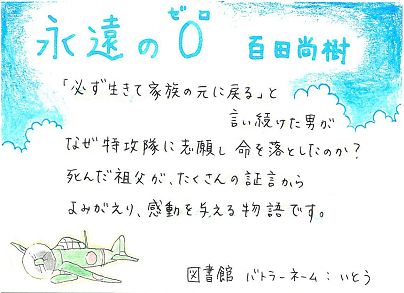 永遠の0 百田尚樹
ゼロ
「必ず生きて家族の元に戻る」と
言い続けた男が
なぜ特攻隊に志願し命を落としたのか？
死んだ祖父が、たくさんの証言から
よみがえり、感動を与える物語です。
図書館 バトラーネーム：いとう